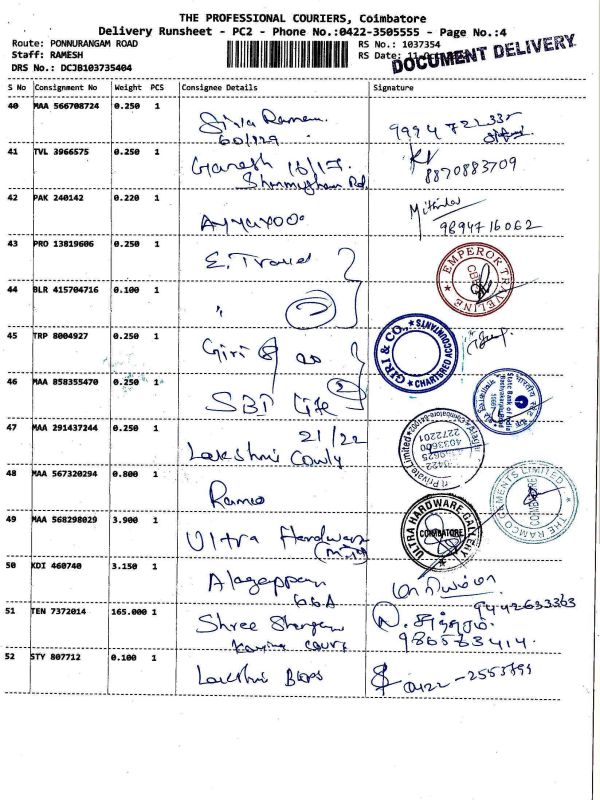 THE PROFESSIONAL COURIERS, Coimbatore
Delivery Runsheet - PC2 - Phone No.:0422-3505555 - Page No.:4
Route: PONNURANGAM ROAD
Staff: RAMESH
DRS No.: DCJB103735404
RS No.: 1037354
RS Date:
DOCUMENT DELIVERY
S No Consignment No Weight PCS Consignee Details Signature
40 MAA 566708724 0.250 1
60/129
41 TVL 3966575 0.250 1 Ganesh 16/17
Shanmugham Rd. 8870883709
42 PAK 240142 0.220 1 Ayyappoo
9894716062
43 PRO 13819606 0.250 1 E. Travel
EMPEROR TRAVELINE
CBE
44 BLR 415704716 0.100 1 "
2
45 TRP 8004927 0.250 1 Giri & co
GIRI & CO., CHARTERED ACCOUNTANTS
46 MAA 858355470 0.250 1 SBI Life
2
State Bank of India
47 MAA 291437244 0.250 1 21/22
Lakshmi
Private Limited
4033600
2272201
0422
48 MAA 567320294 0.800 1 Ramco
THE RAMCO CEMENTS LIMITED
COIMBATORE
49 MAA 568298029 3.900 1 Ultra Hardware
ULTRA HARDWARE GALLERY
COIMBATORE
50 KDI 460740 3.150 1 Alagappan
9442633363
51 TEN 7372014 165.000 1 Shree
52 STY 807712 0.100 1 Lakshmi
0422-2555899